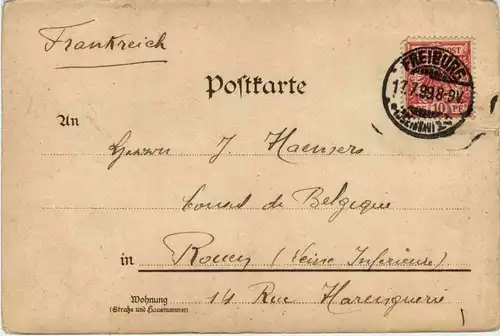 Frankreich
POST
FREIBURG
17.7.99.8-9V.
10 PF
Postkarte
An
Herrn J. Haemers
Consul de Belgique
in Rouen (Seine Inferieure)
Wohnung
(Straße und Hausnummer)
14 Rue Harenguerie